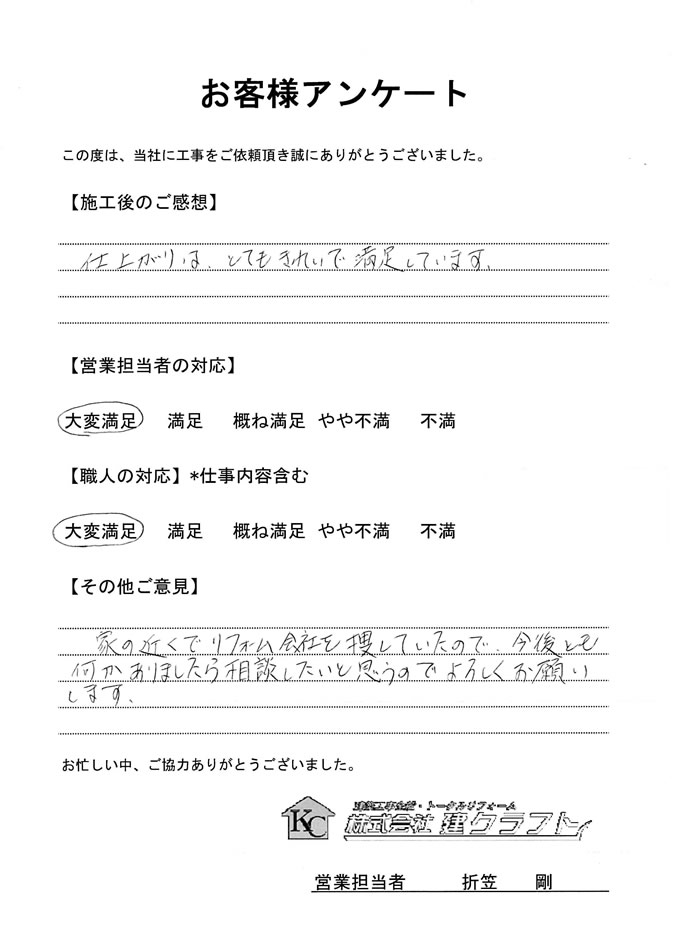 お客様アンケート
この度は、当社に工事をご依頼頂き誠にありがとうございました。
【施工後のご感想】
仕上がりは、とてもきれいで満足しています。
【営業担当者の対応】
大変満足 満足 概ね満足 やや不満 不満
【職人の対応】*仕事内容含む
大変満足 満足 概ね満足 やや不満 不満
【その他ご意見】
家の近くでリフォーム会社を捜していたので、今後とも
何かありましたら相談したいと思うのでよろしくお願い
します。
お忙しい中、ご協力ありがとうございました。
KC
建築工事全般・トータルリフォーム
株式会社 建クラフト
営業担当者 折笠 剛